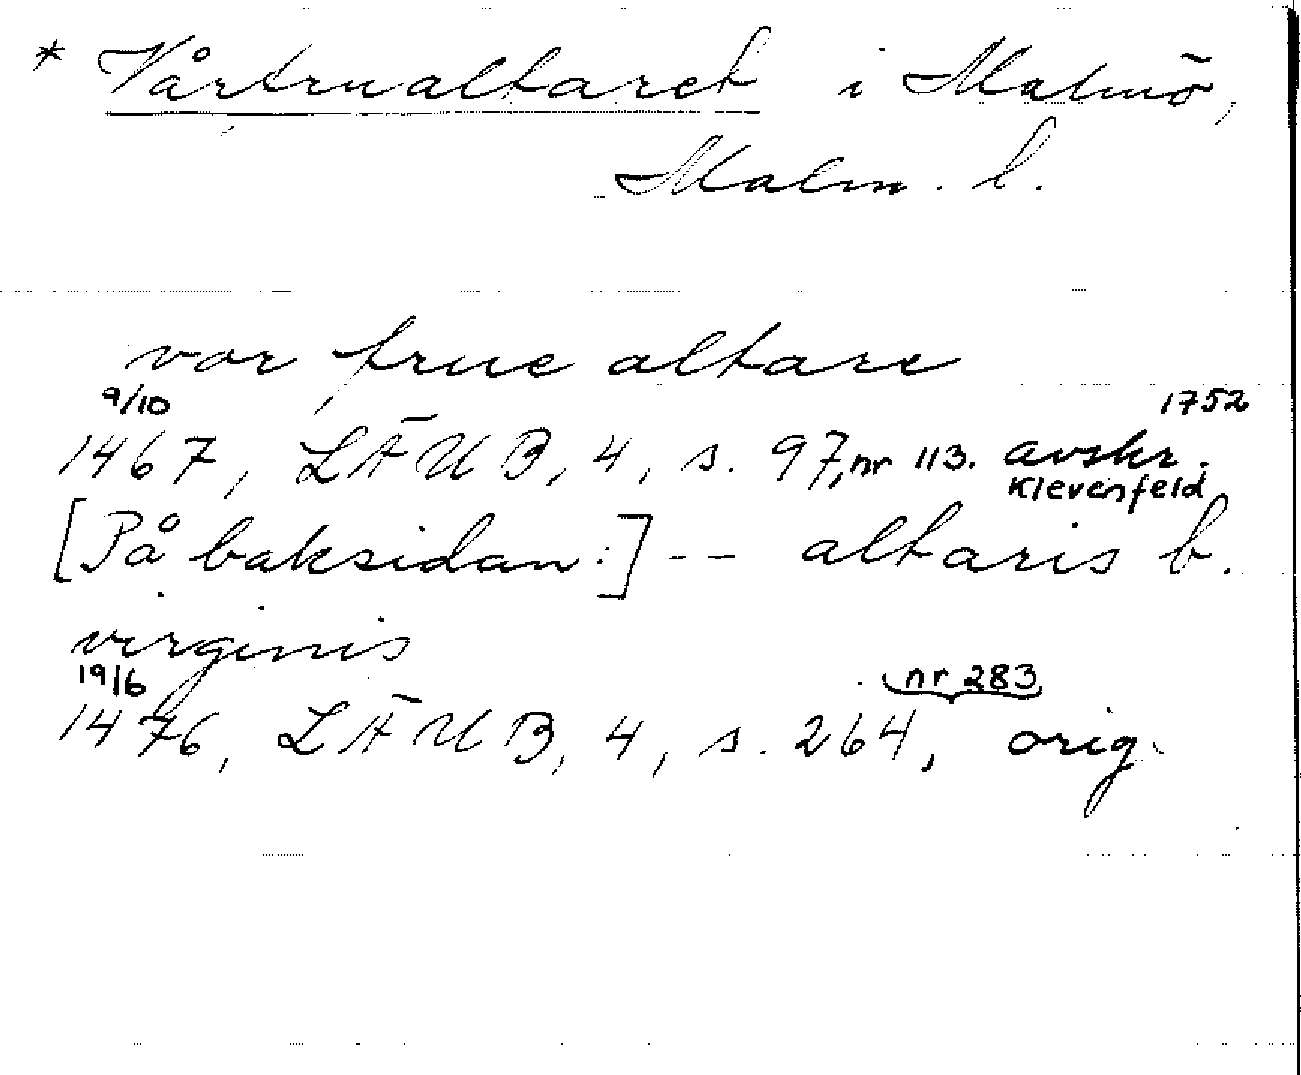 * Vårfrualtaret i Malmö,
Malm. l.
vor frue altare
9/10 1752
1467, LÄUB, 4, s. 97, nr 113. avskr.
Klevenfeld
[På baksidan:] -- altaris b.
virginis
19/6 nr 283
1476, LÄUB, 4, s. 264, orig.